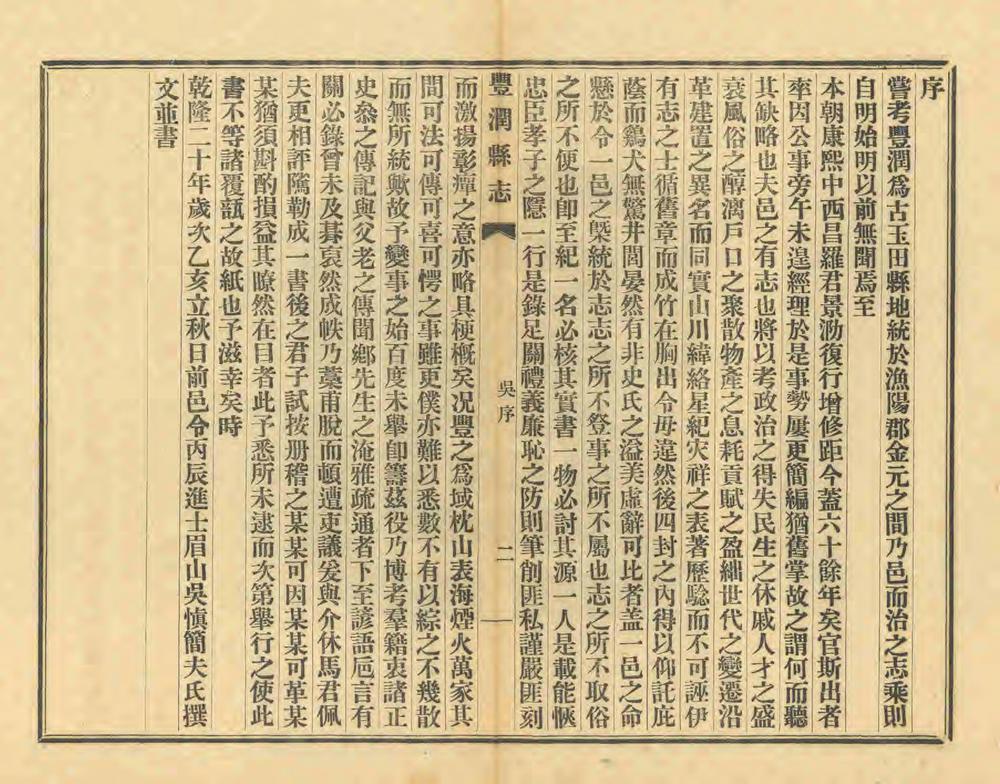 序
嘗考豐潤爲古玉田縣地統於漁陽郡金元之間乃邑而治之志乘則
自明始明以前無聞焉至
本朝康熙中西昌羅君景泐復行增修距今蓋六十餘年矣官斯出者
率因公事旁午未遑經理於是事勢屢更簡編猶舊掌故之謂何而聽
其缺略也夫邑之有志也將以考政治之得失民生之休戚人才之盛
衰風俗之醇漓戶口之聚散物產之息耗貢賦之盈絀世代之變遷沿
革建置之異名而同實山川緯絡星紀灾祥之表著歷騐而不可誣伊
有志之士循舊章而成竹在胸出令毋違然後四封之內得以仰託庇
蔭而鷄犬無驚井閭晏然有非史氏之溢美虛辭可比者盖一邑之命
懸於令一邑之槩統於志志之所不登事之所不屬也志之所不取俗
之所不便也卽至紀一名必核其實書一物必討其源一人是載能愜
忠臣孝子之隱一行是錄足關禮義廉恥之防則筆削匪私謹嚴匪刻
豐潤縣志 吳序 二
而激揚彰癉之意亦略具梗槪矣况豐之爲域枕山表海煙火萬家其
間可法可傳可喜可愕之事雖更僕亦難以悉數不有以綜之不幾散
而無所統歟故予變事之始百度未舉卽籌茲役乃博考羣籍衷諸正
史叅之傳記與父老之傳聞鄉先生之淹雅疏通者下至諺語巵言有
關必錄曾未及朞裒然成帙乃藁甫脫而頓遭吏議爰與介休馬君佩
夫更相評隲勒成一書後之君子試按册稽之某某可因某某可革某
某猶須斟酌損益其瞭然在目者此予悉所未逮而次第舉行之使此
書不等諸覆瓿之故紙也予滋幸矣時
乾隆二十年歲次乙亥立秋日前邑令丙辰進士眉山吳愼簡夫氏撰
文並書